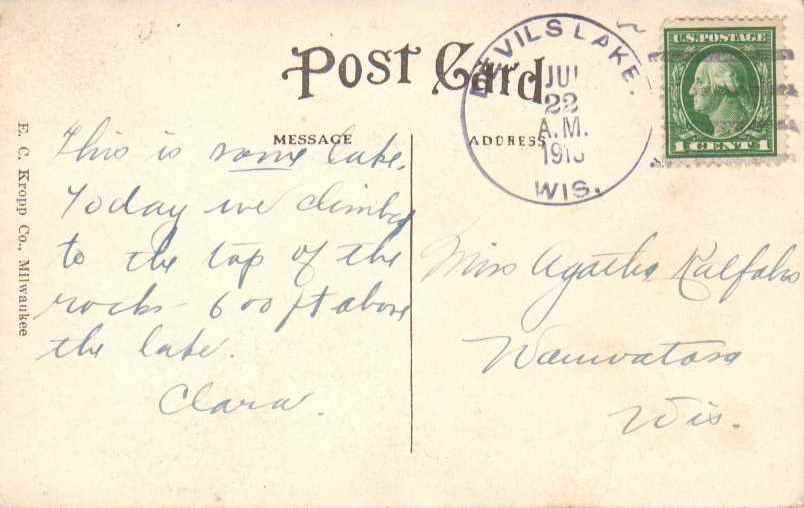 POST CARD
DEVILS LAKE.
JUL
22
A.M.
WIS.
U.S. POSTAGE
1 CENT 1
MESSAGE
ADDRESS
This is some lake.
Today we climbed
to the top of the
rocks - 600 ft above
the lake.
Clara.
Miss Agatha
Wauwatosa
Wis.
E. C. Kropp Co., Milwaukee